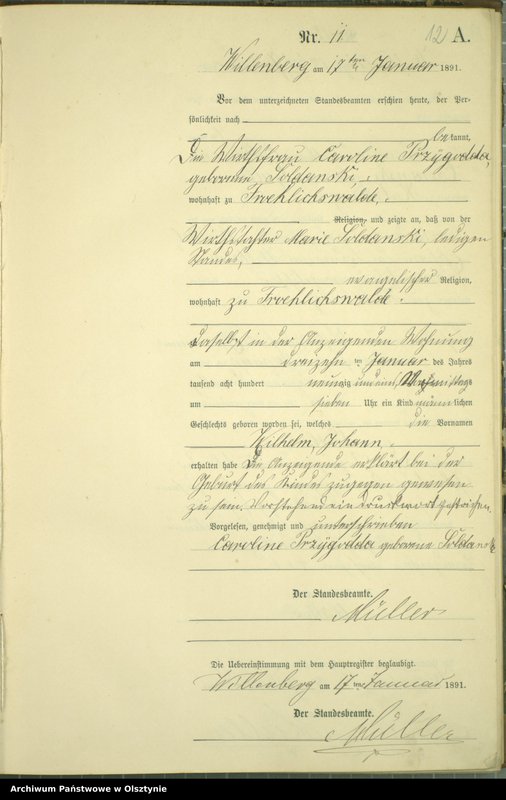 Nr. 11 12 A.
Willenberg am 17ten Januar 1891.
Vor dem unterzeichneten Standesbeamten erschien heute, der Per-
sönlichkeit nach
bekannt,
Die Wirthsfrau Caroline Przÿgodda,
geborene Soldanski,
wohnhaft zu Froehlichswalde,
Religion, und zeigte an, daß von der
Wirthstochter Marie Soldanski, ledigen
Standes,
evangelischer Religion,
wohnhaft zu Froehlichswalde
daselbst in der Anzeigenden Wohnung
am dreizehnten Januar des Jahres
tausend acht hundert neunzig und eins, Nachmittags
um sieben Uhr ein Kind männlichen
Geschlechts geboren worden sei, welches die Vornamen
Wilhelm, Johann
erhalten habe Die Anzeigende erklärt bei der
Geburt des Kindes zugegen gewesen
zu sein. Vorstehend ein Druckwort gestrichen.
Vorgelesen, genehmigt und unterschrieben
Caroline Przÿgodda geborene Soldanski
Der Standesbeamte.
Müller
Die Uebereinstimmung mit dem Hauptregister beglaubigt.
Willenberg am 17ten Januar 1891.
Der Standesbeamte.
Müller
Archiwum Państwowe w Olsztynie